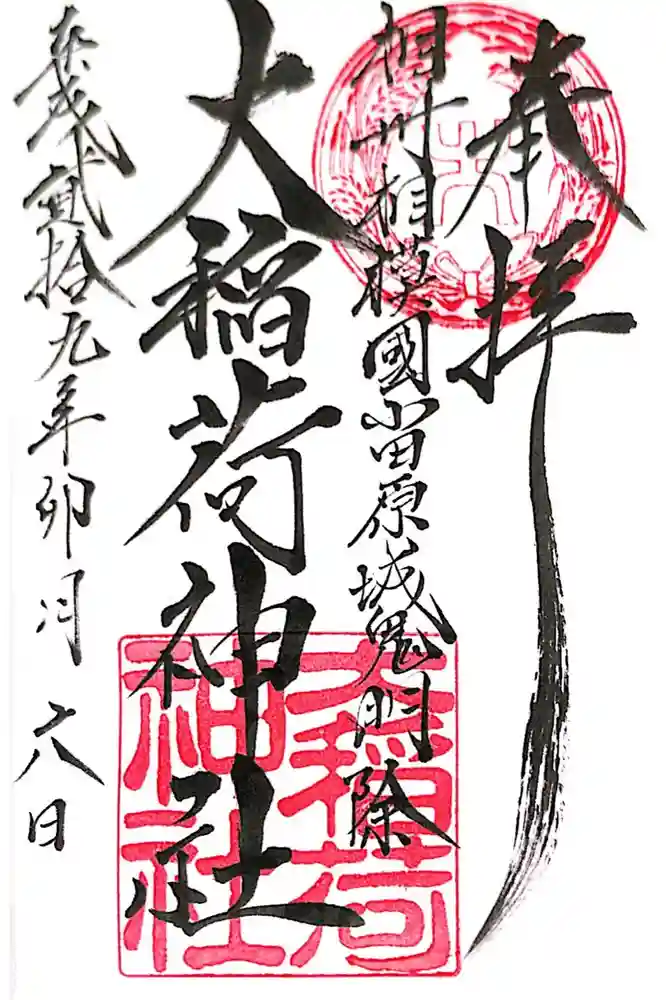 奉拝
相州相模國小田原城鬼門除
大稲荷神社
平成貳拾九年卯月六日
大稲荷
神社